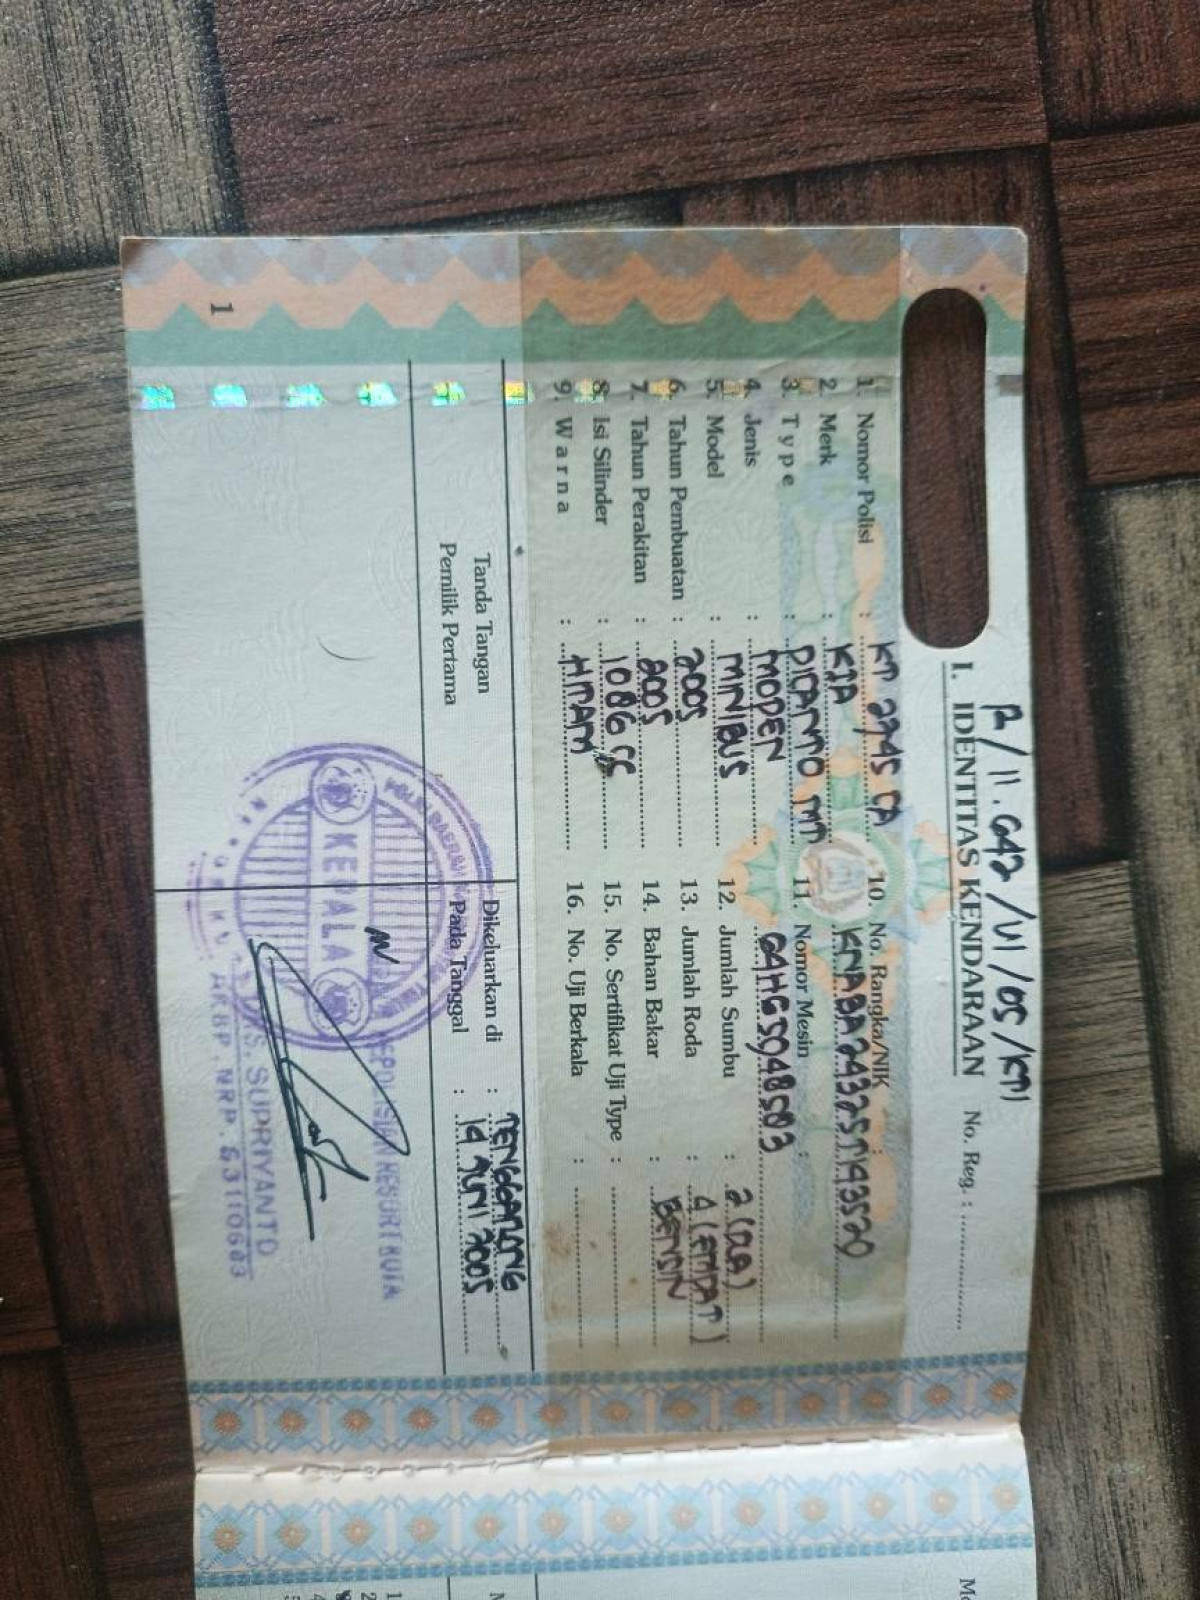 P/11.642/VI/05/KTI
I. IDENTITAS KENDARAAN No. Reg. :
1. Nomor Polisi : KT 2745 CA
2. Merk : KIA
3. Type : PICANTO MT
4. Jenis : MOPEN
5. Model : MINIBUS
6. Tahun Pembuatan : 2005
7. Tahun Perakitan : 2005
8. Isi Silinder : 1086 CC
9. Warna : HITAM
10. No. Rangka/NIK :
KNABA24325T193520
11. Nomor Mesin :
G4HG5048503
12. Jumlah Sumbu : 2 (DUA)
13. Jumlah Roda : 4 (EMPAT)
14. Bahan Bakar : BENSIN
15. No. Sertifikat Uji Type :
16. No. Uji Berkala :
Tanda Tangan
Pemilik Pertama
Dikeluarkan di : TENGGARONG
Pada Tanggal : 14 JUNI 2005
KEPALA
SUPRIYANTO
1